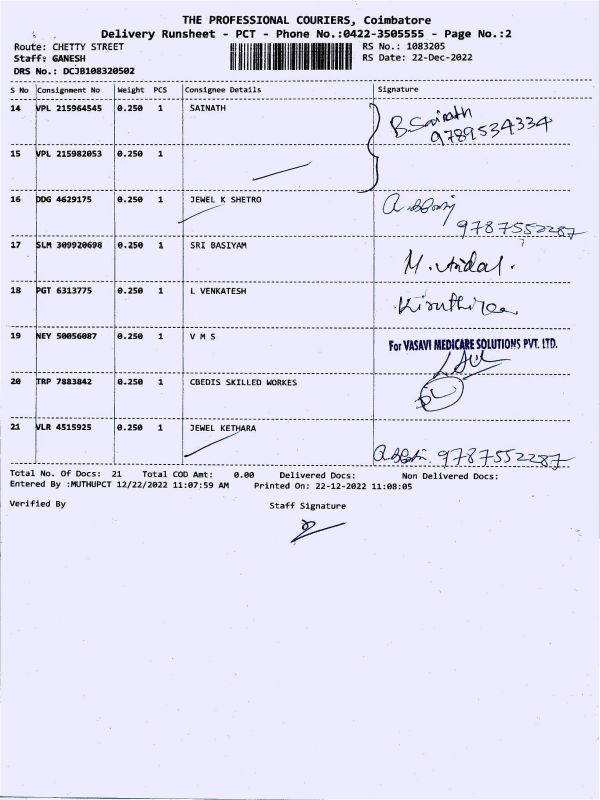 THE PROFESSIONAL COURIERS, Coimbatore
Delivery Runsheet - PCT - Phone No.:0422-3505555 - Page No.:2
Route: CHETTY STREET
RS No.: 1083205
Staff: GANESH
RS Date: 22-Dec-2022
DRS No.: DCJB108320502
S No Consignment No Weight PCS Consignee Details Signature
14 VPL 215964545 0.250 1 SAINATH
B. Sainath
9789534334
15 VPL 215982053 0.250 1
16 DDG 4629175 0.250 1 JEWEL K SHETRO
9787552287
17 SLM 309920698 0.250 1 SRI BASIYAM
M. Andal.
18 PGT 6313775 0.250 1 L VENKATESH
Kiruthika
19 NEY 50056087 0.250 1 V M S
For VASAVI MEDICARE SOLUTIONS PVT. LTD.
20 TRP 7883842 0.250 1 CBEDIS SKILLED WORKES
21 VLR 4515925 0.250 1 JEWEL KETHARA
9787552287
Total No. Of Docs: 21 Total COD Amt: 0.00 Delivered Docs: Non Delivered Docs:
Entered By :MUTHUPCT 12/22/2022 11:07:59 AM Printed On: 22-12-2022 11:08:05
Verified By Staff Signature